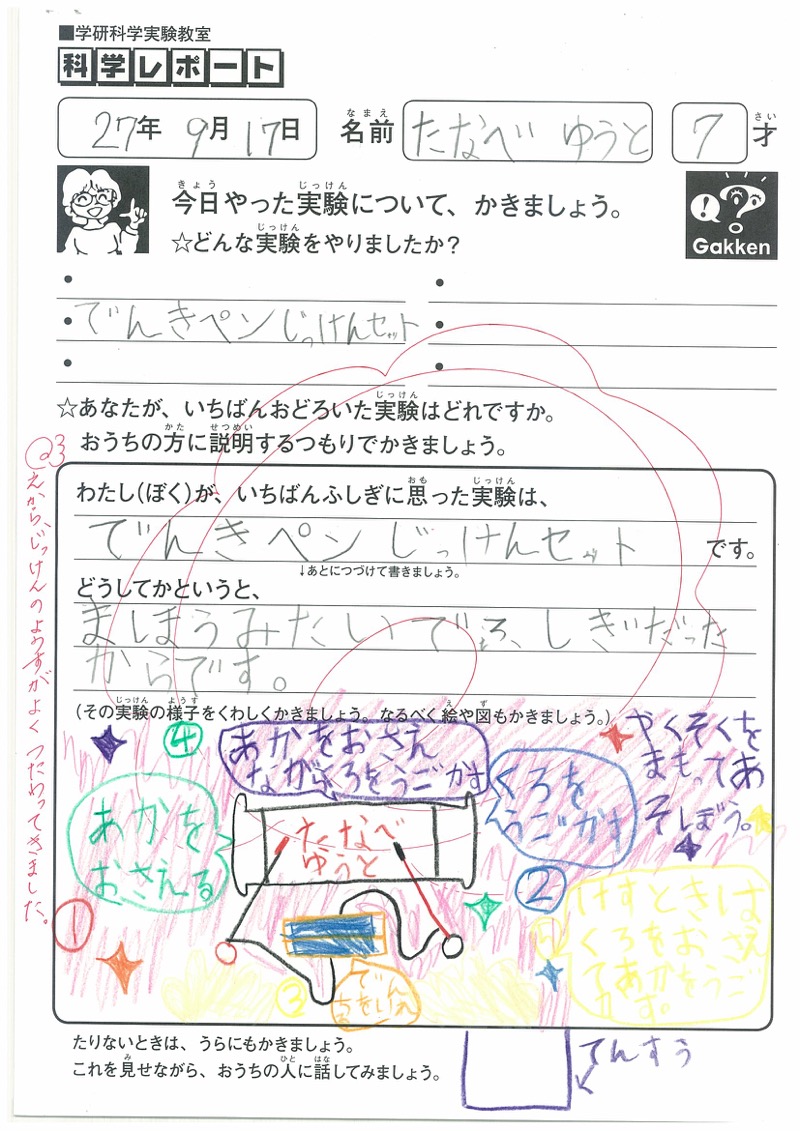 ■学研科学実験教室
科学レポート
27年 9月 17日 名前 たなべ ゆうと 7才
今日やった実験について、かきましょう。
☆どんな実験をやりましたか?
Gakken
・でんきペンじっけんセット
☆あなたが、いちばんおどろいた実験はどれですか。
おうちの方に説明するつもりでかきましょう。
わたし(ぼく)が、いちばんふしぎに思った実験は、
でんきペン じっけんセット です。
↓あとにつづけて書きましょう。
どうしてかというと、
まほうみたいで、ふしぎだった
からです。
(その実験の様子をくわしくかきましょう。なるべく絵や図もかきましょう。)
④
あかをおさえ
ながらくろをうごかす
やくそくを
まもってあ
そぼう。
あかを
おさえる
①
たなべ
ゆうと
くろを
うごかす
②
けすときは
くろをおさえ
てあかをうご
かす。
③
えから、じっけんのようすがよく つたわってきました。
たりないときは、うらにもかきましょう。
これを見せながら、おうちの人に話してみましょう。
てんすう